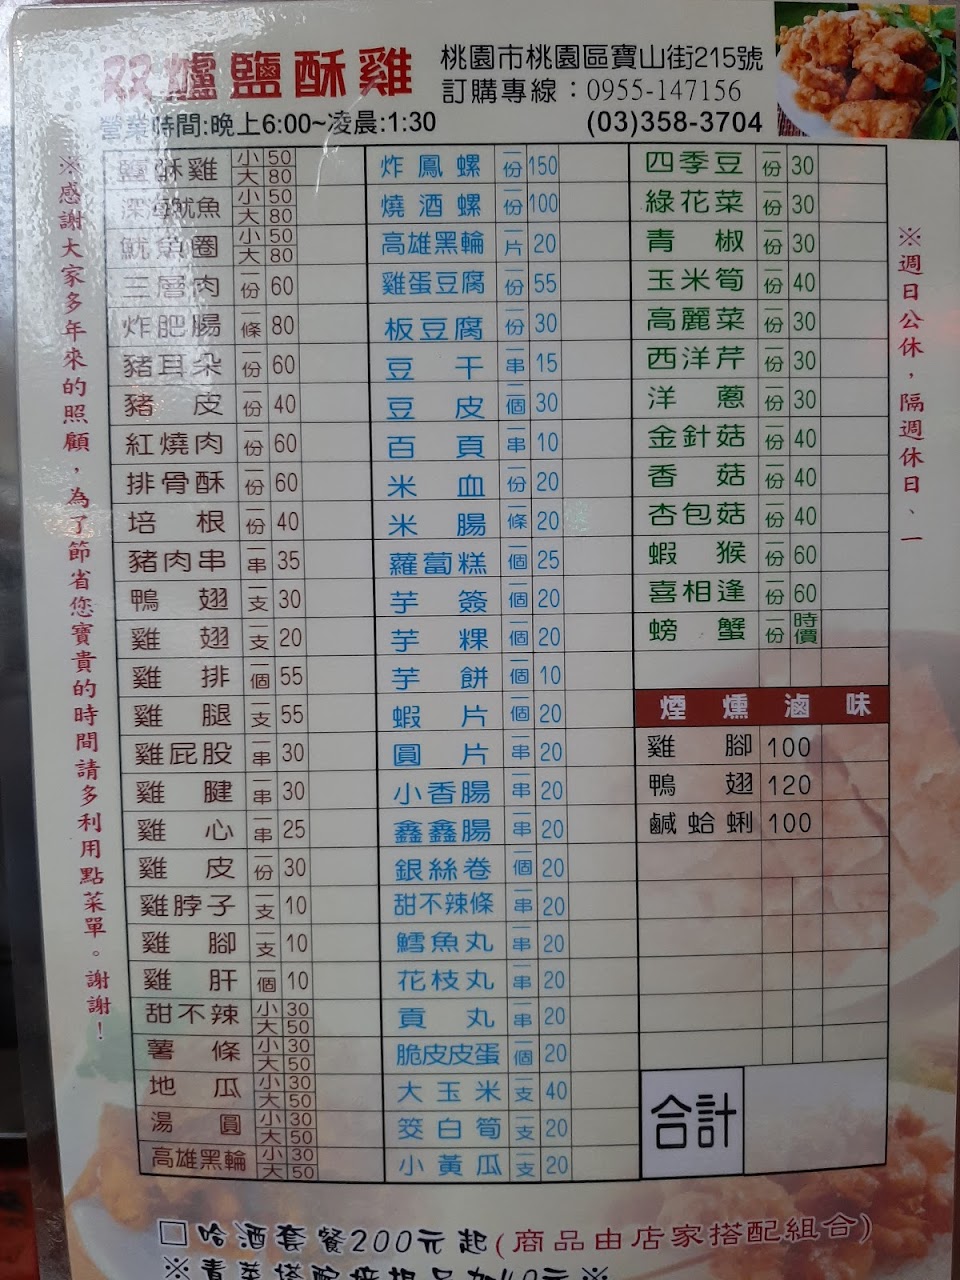 双爐鹽酥雞
桃園市桃園區寶山街215號
訂購專線：0955-147156
營業時間:晚上6:00~凌晨:1:30
(03)358-3704
※感謝大家多年來的照顧，為了節省您寶貴的時間請多利用點菜單。謝謝！
鹽酥雞 小 50 大 80
深海魷魚 小 50 大 80
魷魚圈 小 50 大 80
三層肉 一份 60
炸肥腸 一條 80
豬耳朵 一份 60
豬皮 一份 40
紅燒肉 一份 60
排骨酥 一份 60
培根 一份 40
豬肉串 一串 35
鴨翅 一支 30
雞翅 一支 20
雞排 一個 55
雞腿 一支 55
雞屁股 一串 30
雞腱 一串 30
雞心 一串 25
雞皮 一份 30
雞脖子 一支 10
雞腳 一支 10
雞肝 一個 10
甜不辣 小 30 大 50
薯條 小 30 大 50
地瓜 小 30 大 50
湯圓 小 30 大 50
高雄黑輪 小 30 大 50
炸鳳螺 一份 150
燒酒螺 一份 100
高雄黑輪 一片 20
雞蛋豆腐 一份 55
板豆腐 一份 30
豆干 一串 15
豆皮 一個 30
百頁 一串 10
米血 一份 20
米腸 一條 20
蘿蔔糕 一個 25
芋簽 一個 20
芋粿 一個 20
芋餅 一個 10
蝦片 一個 20
圓片 一串 20
小香腸 一串 20
鑫鑫腸 一串 20
銀絲卷 一個 20
甜不辣條 一串 20
鱈魚丸 一串 20
花枝丸 一串 20
貢丸 一串 20
脆皮皮蛋 一個 20
大玉米 一支 40
筊白筍 一支 20
小黃瓜 一支 20
四季豆 一份 30
綠花菜 一份 30
青椒 一份 30
玉米筍 一份 40
高麗菜 一份 30
西洋芹 一份 30
洋蔥 一份 30
金針菇 一份 40
香菇 一份 40
杏包菇 一份 40
蝦猴 一份 60
喜相逢 一份 60
螃蟹 一份 時價
煙燻滷味
雞腳 100
鴨翅 120
鹹蛤蜊 100
合計
※週日公休，隔週休日、一
□哈酒套餐200元起(商品由店家搭配組合)
※青菜搭配
加40元※